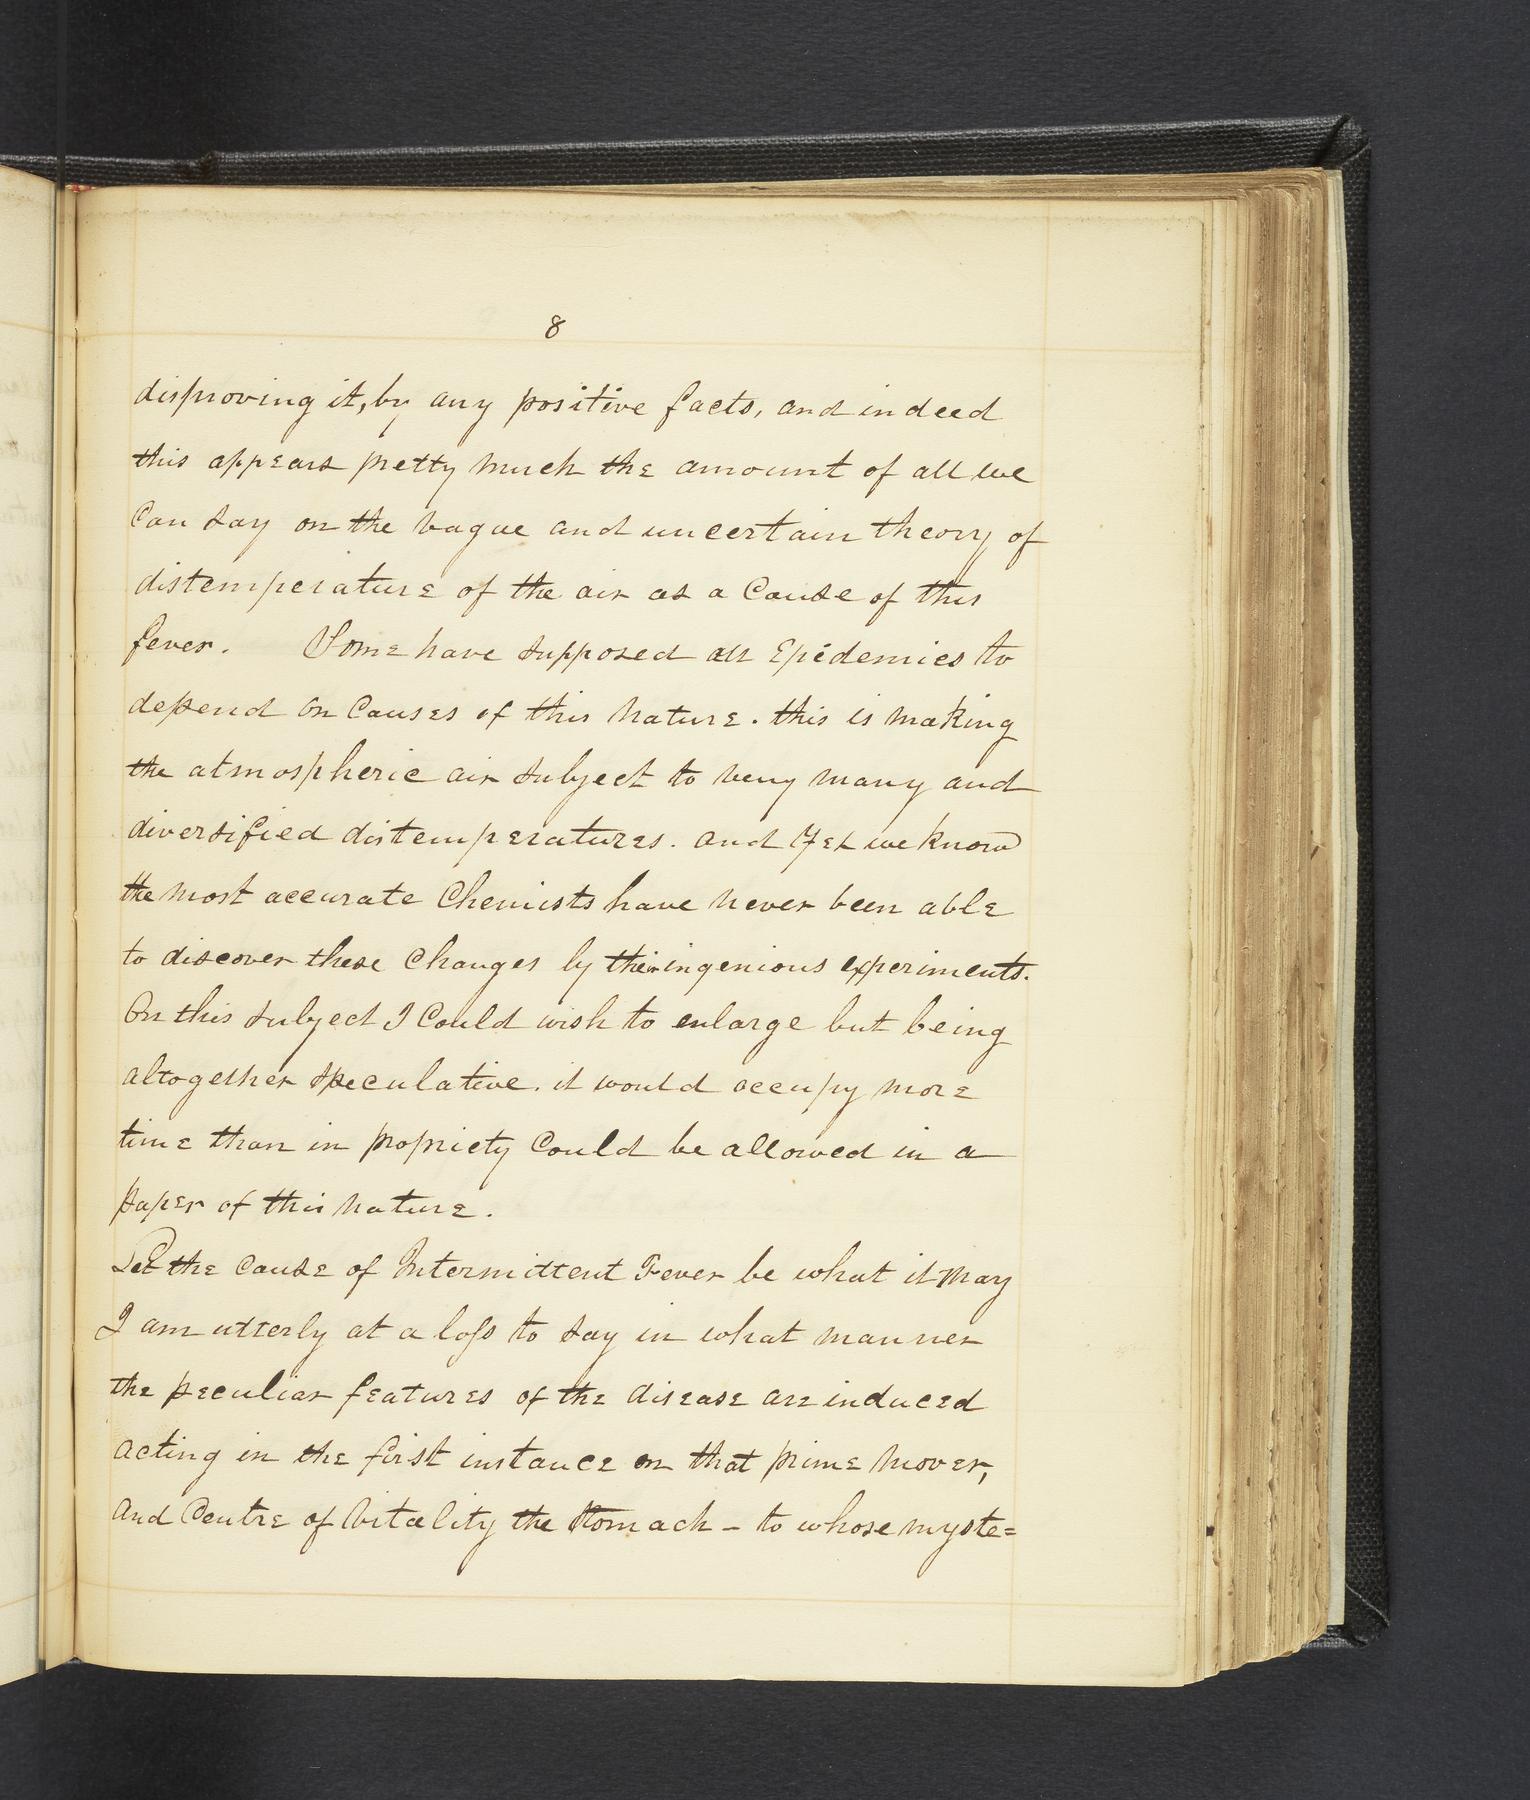 8
disproving it, by any positive facts, and indeed
this appears pretty much the amount of all we
can say on the vague and uncertain theory of
distemperature of the air as a Cause of this
fever. Some have supposed all Epidemics to
depend on Causes of this nature. this is making
the atmospheric air subject to very many and
diversified distemperatures. and Yet we know
the most accurate Chemists have never been able
to discover these Changes by their ingenious experiments.
On this subject I Could wish to enlarge but being
altogether speculative. it would occupy more
time than in propriety Could be allowed in a
paper of this nature.
Let the Cause of Intermittent Fever be what it may
I am utterly at a loss to say in what manner
the peculiar features of the disease are induced
acting in the first instance on that prime mover,
and Centre of Vitality the Stomach – to whose myste=